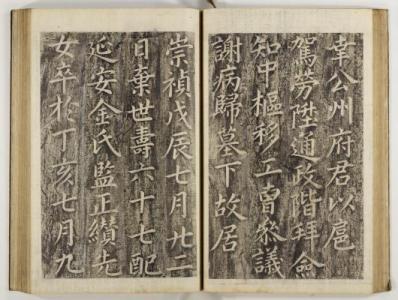 幸公州府君以扈
駕勞陞通政階拜僉
知中樞移工曺叅議
謝病歸墓下故居
崇禎戊辰七月廿二
日棄世壽六十七配
延安金氏監正纘先
女卒於丁亥七月九